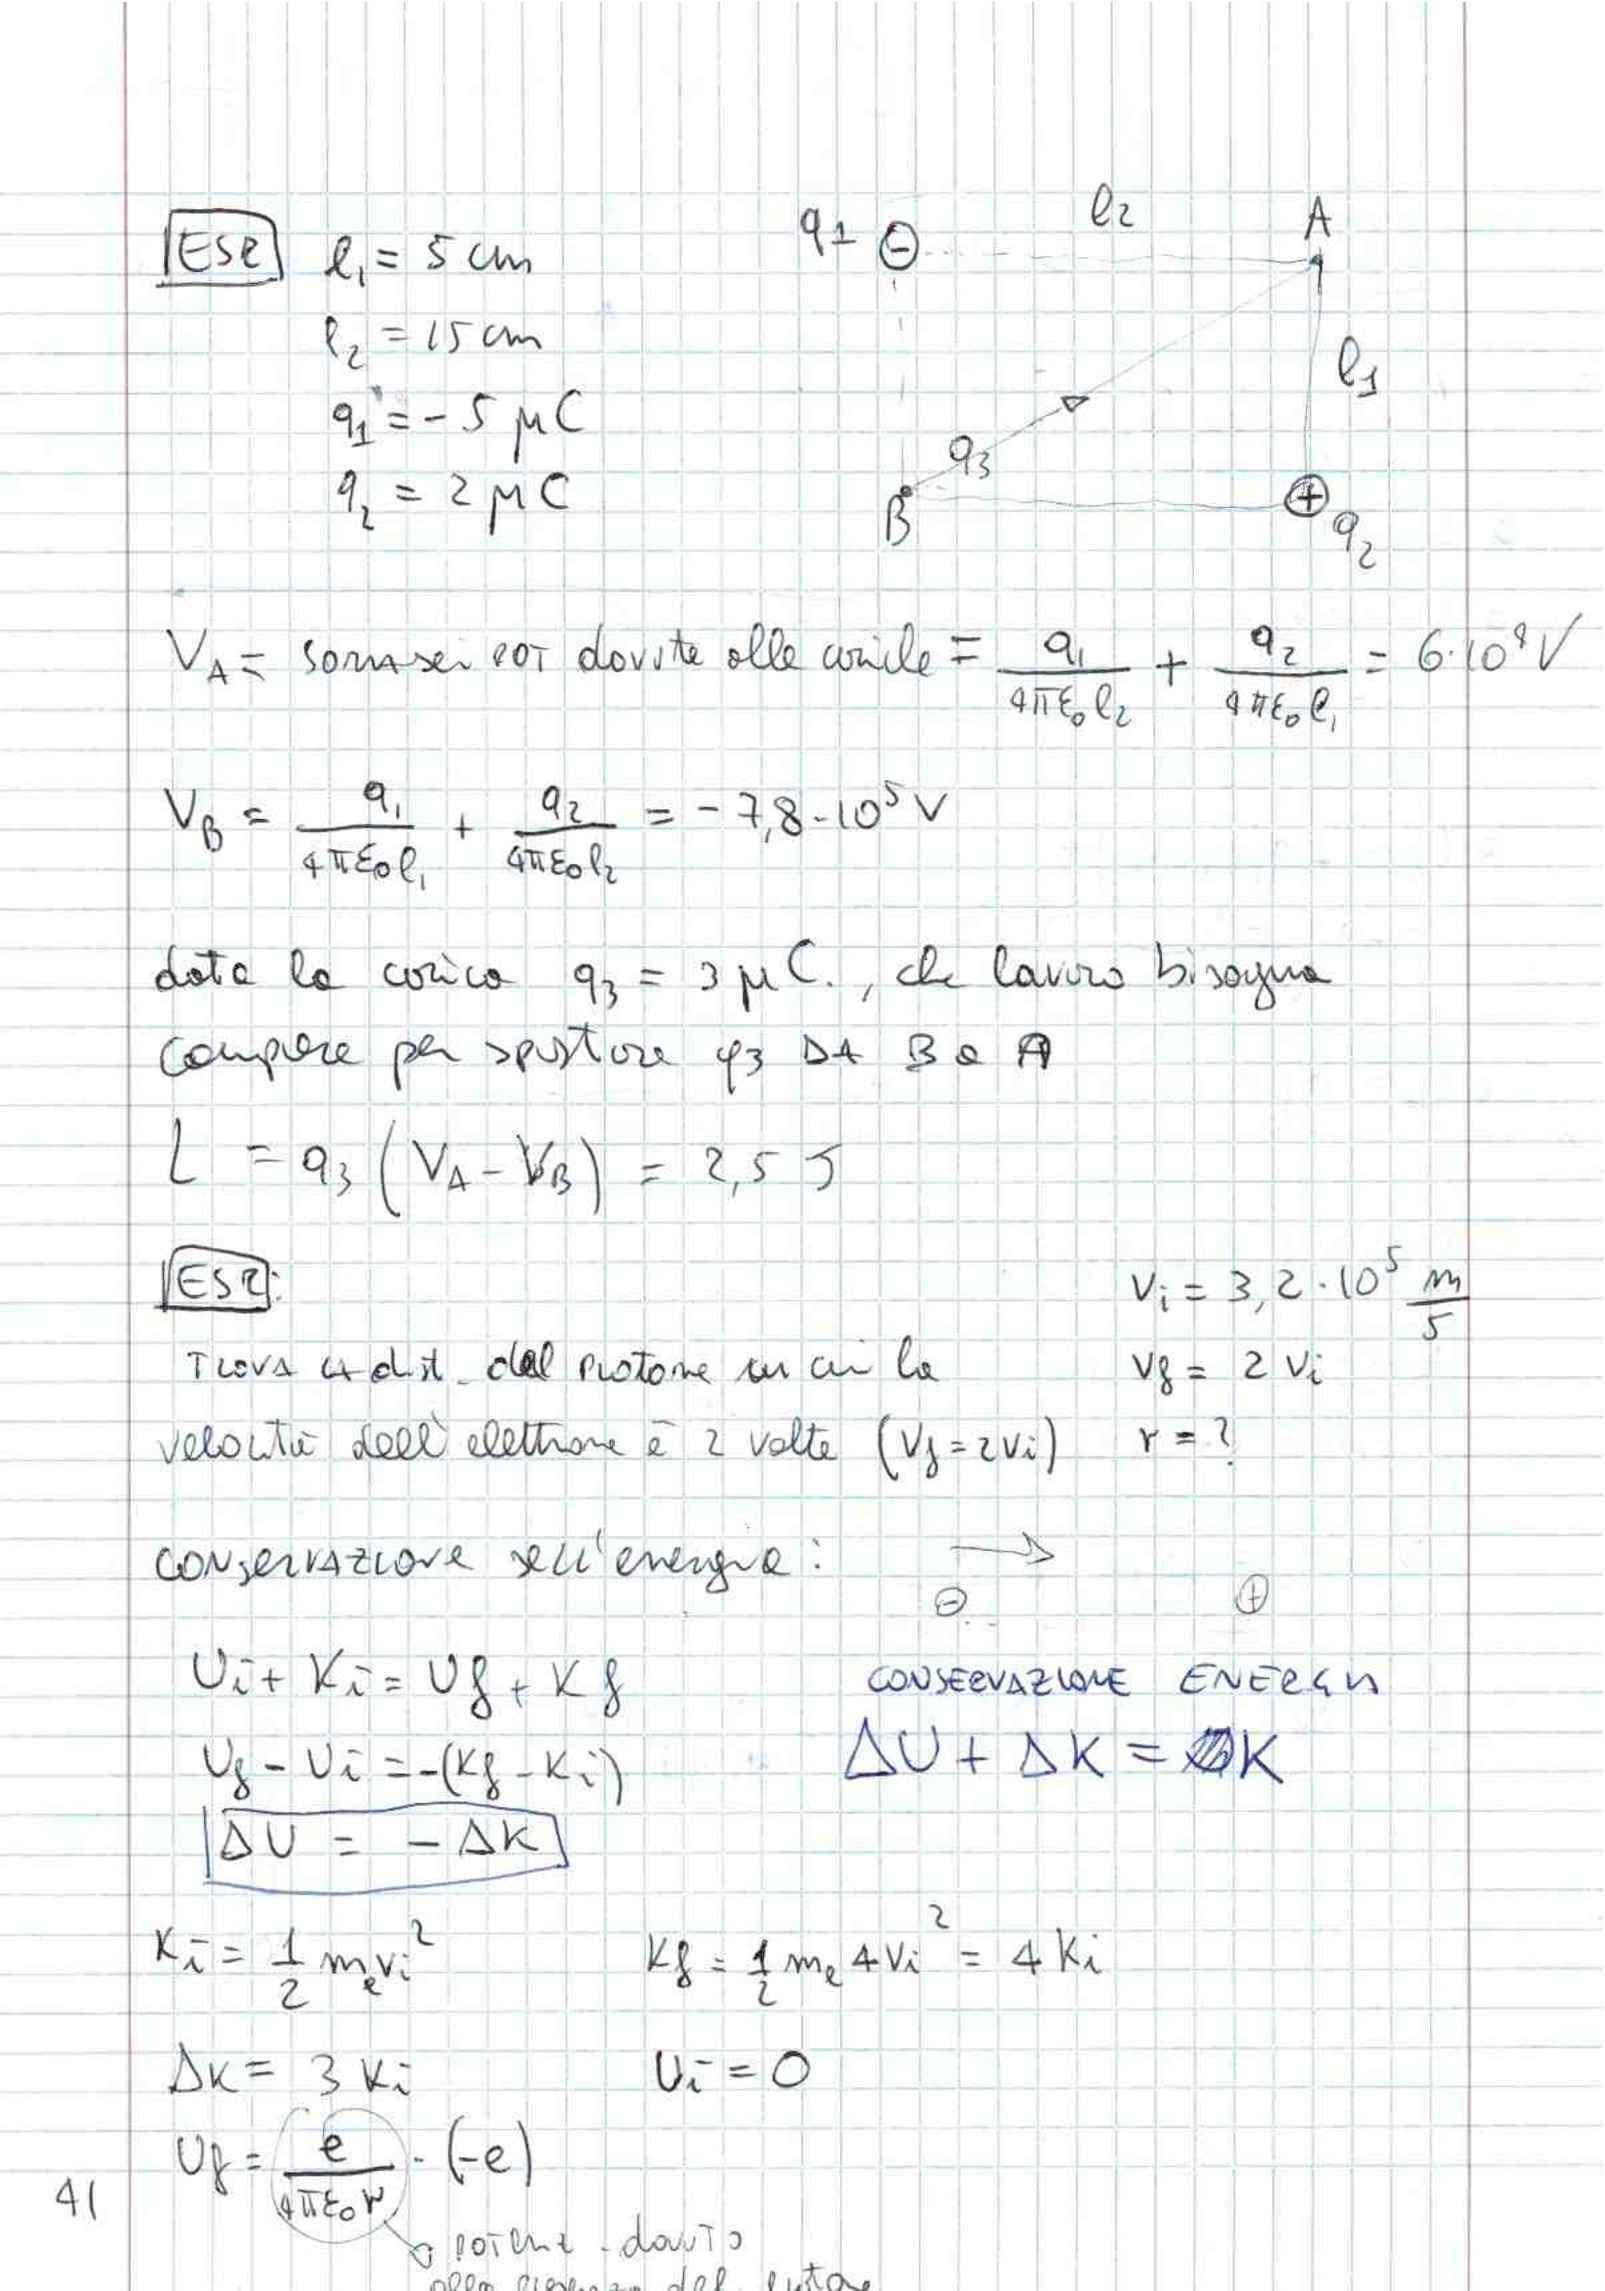 ESR l₁ = 5 cm
l₂ = 15 cm
q₁ = - 5 μC
q₂ = 2 μC
q1 ⊖ l2 A
l1
q3
B ⊕ q2
V_A = somma dei POT dovute alle cariche = q₁/(4πε₀l₂) + q₂/(4πε₀l₁) = 6·10⁴ V
V_B = q₁/(4πε₀l₁) + q₂/(4πε₀l₂) = - 7,8·10⁵ V
data la carica q₃ = 3 μC., che lavoro bisogna
compiere per spostare q3 DA B a A
L = q₃ (V_A - V_B) = 2,5 J
ESR:
TROVA LA dist. dal protone in cui la
velocità dell'elettrone è 2 volte (Vf = 2Vi)
Vi = 3,2·10⁵ m/s
Vf = 2 Vi
r = ?
CONSERVAZIONE dell'energia:
⊖ → ⊕
Ui + Ki = Uf + Kf
Uf - Ui = -(Kf - Ki)
ΔU = - ΔK
CONSERVAZIONE ENERGIA
ΔU + ΔK = K
Ki = 1/2 mₑvi² Kf = 1/2 mₑ 4Vi² = 4 Ki
ΔK = 3 Ki Ui = 0
Uf = e/(4πε₀r) · (-e)
potenz. dovuto
41